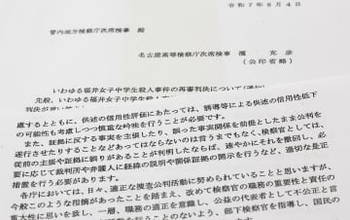 令和7年8月4日
管内地方検察庁次席検事 殿
名古屋高等検察庁次席検事
（公印省略）
いわゆる福井女子中学生殺人事件の再審判決について
先般、いわゆる福井女子中学生殺人事件
慮するとともに、供述の信用性評価にあたっては、誘導等による供述の信用性低下
の可能性も考慮しつつ慎重な吟味を行うことが必要です。
また、証拠に反する事実を主張したり、誤った事実関係を前提としたまま公判を
遂行させたりすることなどあってはならないのは言うまでもなく、検察官としては、
従前の主張や証拠に誤りがあることが判明したならば、速やかにそれを撤回し、必
要に応じて裁判所や弁護人に経緯の説明や関係証拠の開示を行うなど、適切な是正
措置を行う必要があります。
各庁においては、日々、適正な捜査公判活動に努められていることと思いますが、
今般このような指摘があったことを踏まえ、改めて検察官の職務の重要性と責任の
重大性に思いを致し、一層、職務の適正を期し、公益の代表者として不公正と言
うことのないよう、部下検察官を指導し、国民の